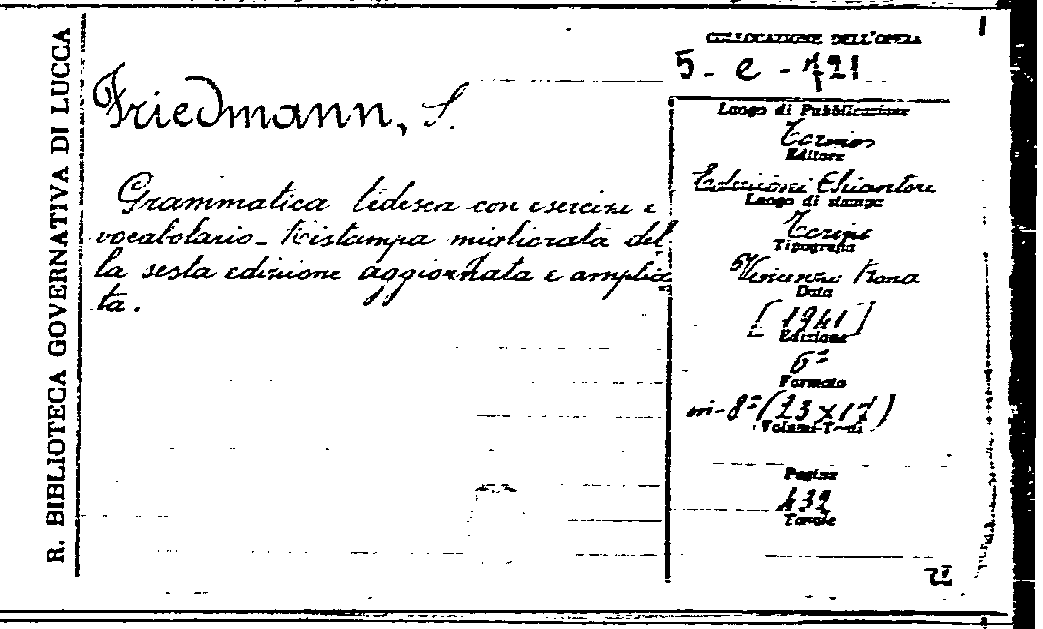 R. BIBLIOTECA GOVERNATIVA DI LUCCA
COLLOCAZIONE DELL'OPERA
5 - e - 121
Friedmann, S.
Grammatica tedesca con esercizi e
vocabolario - Ristampa migliorata del
la sesta edizione aggiornata e amplia
ta.
Luogo di Pubblicazione
Torino
Editore
Edizioni Chiantore
Luogo di stampa
Torino
Tipografia
Vincenzo Bona
Data
[1941]
Edizione
6ª
Formato
in-8º (23 x 17)
Volumi-Tomi
Pagine
432
Tavole